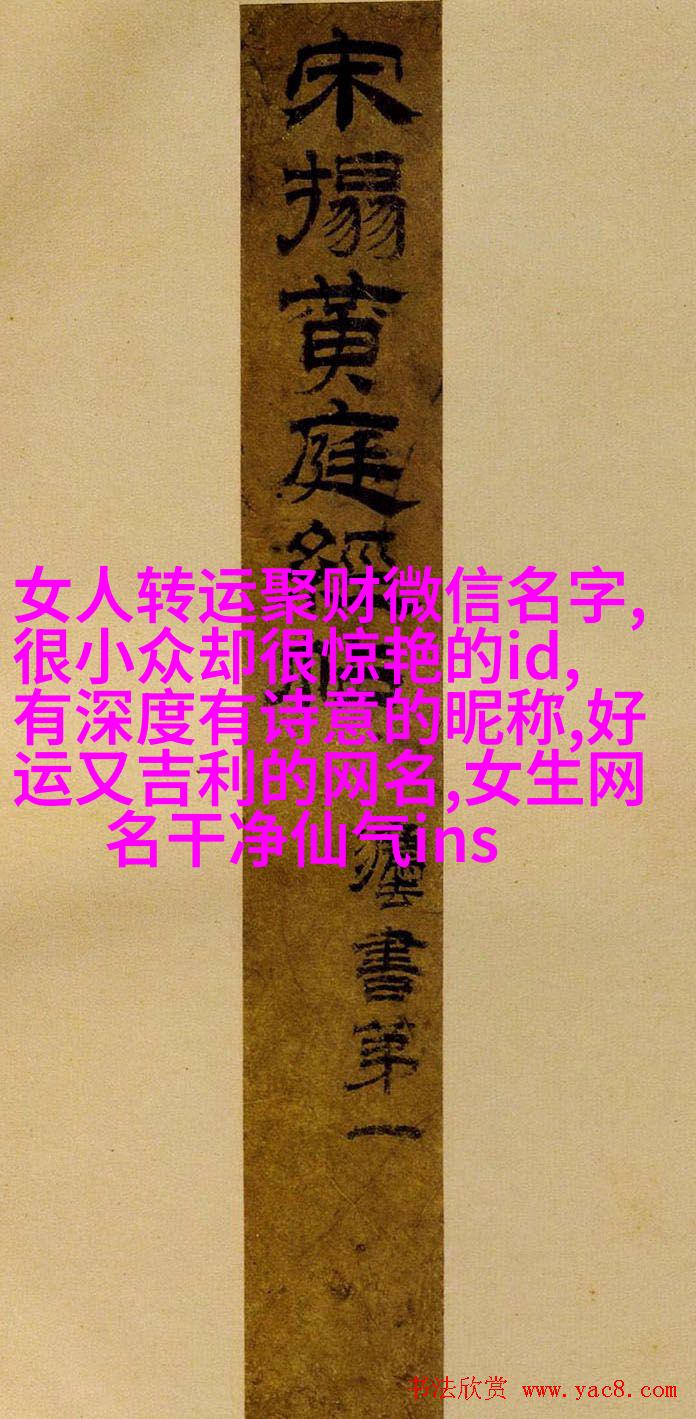 宋搨黄庭經
書第一
女人转运聚财微信名字,
很小众却很惊艳的id,
有深度有诗意的昵称,好
运又吉利的网名,女生网
名干净仙气ins
书法欣赏 www.yac8.com